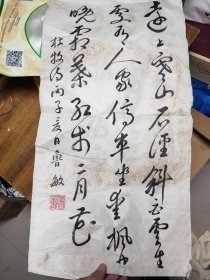 远上寒山石径斜白云生
处有人家停车坐爱枫林
晚霜叶红于二月花
杜牧诗丙子夏日鲁敏